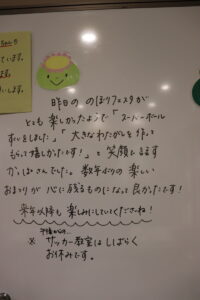 ています。
ます。
します。
昨日の のぼりフェスタが
とても 楽しかったようで「スーパーボール
すくいをしました」「大きなわたがしを作って
もらって嬉しかったです！」と 笑顔で話す
かっぱさんでした。数年ぶりの 楽しい
おまつりが 心に残るものになって良かったです！
来年以降も 楽しみにしていてくださいね！
午後からの…
※ サッカー教室は しばらく
お休みです。